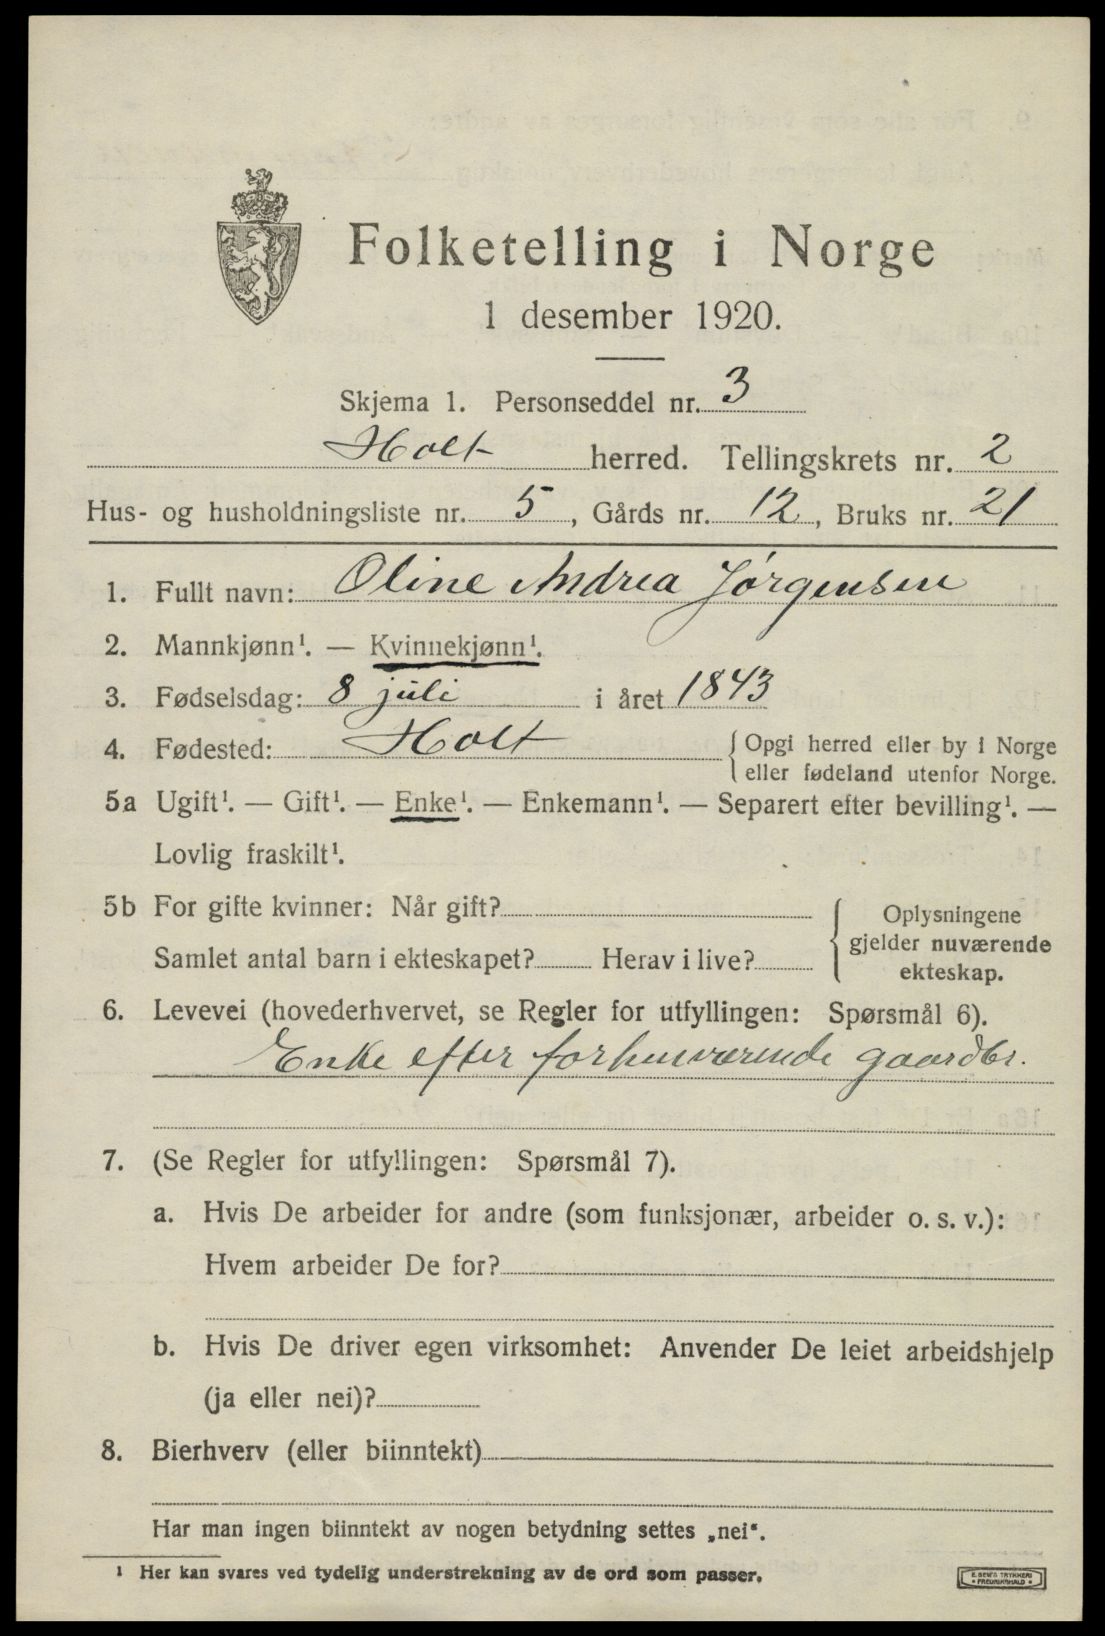 Folketelling i Norge
1 desember 1920.
Skjema 1. Personseddel nr. 3
Holt herred. Tellingskrets nr. 2
Hus- og husholdningsliste nr. 5, Gårds nr. 12, Bruks nr. 21
1. Fullt navn: Oline Andrea Jørgensen
2. Mannkjønn¹. — Kvinnekjønn¹.
3. Fødselsdag: 8 juli i året 1843
4. Fødested: Holt
Opgi herred eller by i Norge
eller fødeland utenfor Norge.
5a Ugift¹. — Gift¹. — Enke¹. — Enkemann¹. — Separert efter bevilling¹. —
Lovlig fraskilt¹.
5b For gifte kvinner: Når gift?
Samlet antal barn i ekteskapet? Herav i live?
Oplysningene
gjelder nuværende
ekteskap.
6. Levevei (hovederhvervet, se Regler for utfyllingen: Spørsmål 6).
Enke efter forhenværende gaardbr.
7. (Se Regler for utfyllingen: Spørsmål 7).
a. Hvis De arbeider for andre (som funksjonær, arbeider o. s. v.):
Hvem arbeider De for?
b. Hvis De driver egen virksomhet: Anvender De leiet arbeidshjelp
(ja eller nei)?
8. Bierhverv (eller biinntekt)
Har man ingen biinntekt av nogen betydning settes „nei“.
¹ Her kan svares ved tydelig understrekning av de ord som passer.
E. SEM'S TRYKKERI
• FREDRIKSHALD •